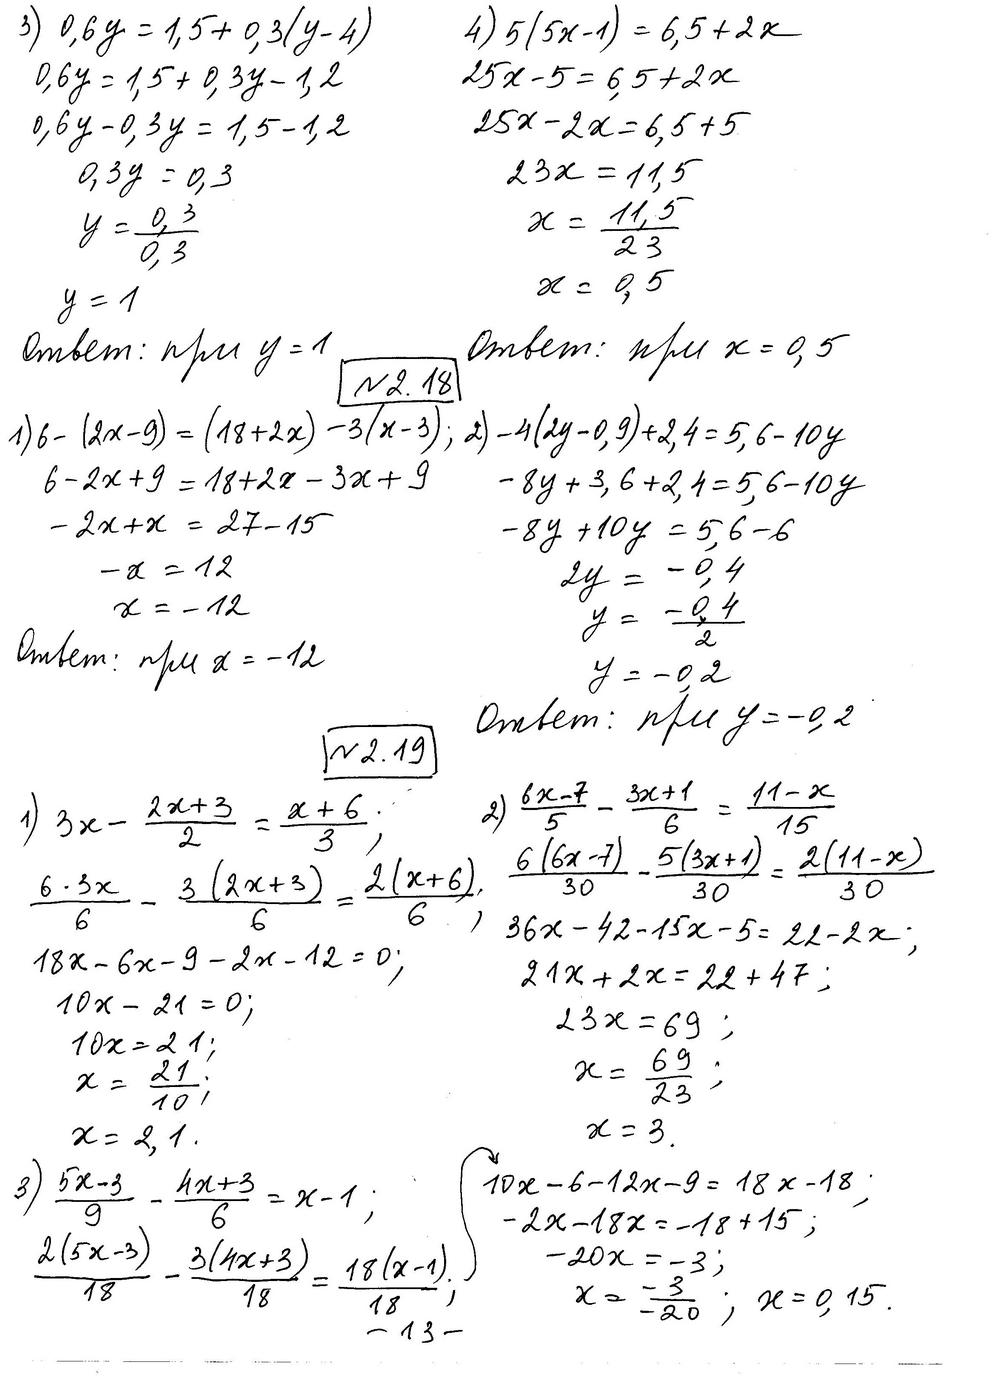 3) 0,6y = 1,5 + 0,3(y-4)
0,6y = 1,5 + 0,3y - 1,2
0,6y - 0,3y = 1,5 - 1,2
0,3y = 0,3
y = 0,3/0,3
y = 1
Ответ: при y = 1
4) 5(5x-1) = 6,5 + 2x
25x - 5 = 6,5 + 2x
25x - 2x = 6,5 + 5
23x = 11,5
x = 11,5/23
x = 0,5
Ответ: при x = 0,5
№2.18
1) 6 - (2x-9) = (18+2x) - 3(x-3);
6 - 2x + 9 = 18 + 2x - 3x + 9
-2x + x = 27 - 15
-x = 12
x = -12
Ответ: при x = -12
2) -4(2y-0,9) + 2,4 = 5,6 - 10y
-8y + 3,6 + 2,4 = 5,6 - 10y
-8y + 10y = 5,6 - 6
2y = -0,4
y = -0,4/2
y = -0,2
Ответ: при y = -0,2
№2.19
1) 3x - (2x+3)/2 = (x+6)/3;
6·3x/6 - 3(2x+3)/6 = 2(x+6)/6;
18x - 6x - 9 - 2x - 12 = 0;
10x - 21 = 0;
10x = 21;
x = 21/10;
x = 2,1.
2) (6x-7)/5 - (3x+1)/6 = (11-x)/15
6(6x-7)/30 - 5(3x+1)/30 = 2(11-x)/30
36x - 42 - 15x - 5 = 22 - 2x;
21x + 2x = 22 + 47;
23x = 69;
x = 69/23;
x = 3.
3) (5x-3)/9 - (4x+3)/6 = x - 1;
2(5x-3)/18 - 3(4x+3)/18 = 18(x-1)/18;
10x - 6 - 12x - 9 = 18x - 18;
-2x - 18x = -18 + 15;
-20x = -3;
x = -3/-20; x = 0,15.
- 13 -